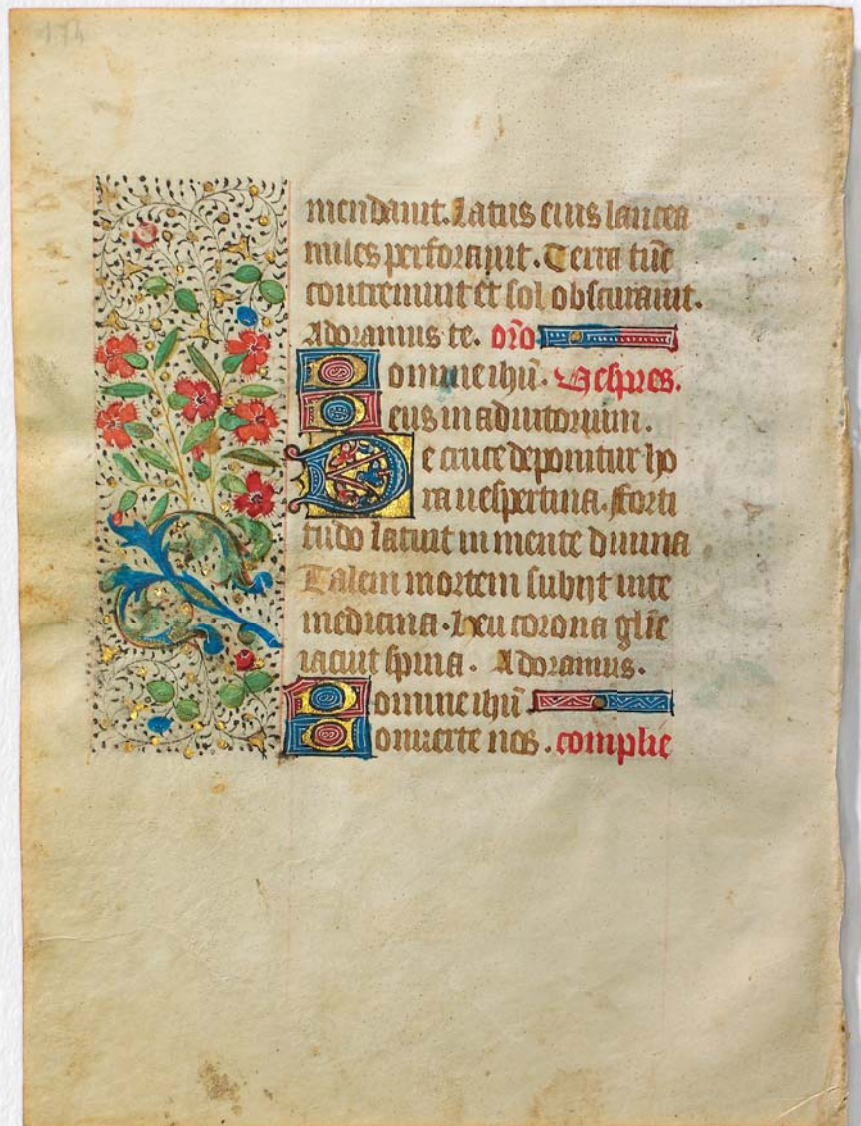 174
mendauit. Latus eius lancea
miles perforauit. Terra tūc
contremuit et sol obscurauit.
Adoramus te. or̄o
Domine ihū. Vespres.
Deus in adiutorium.
De cruce deponitur ho
ra uespertina. fforti
tudo latuit in mente diuina
Talem mortem subijt uite
medicina. heu corona gl̄ie
iacuit spina. Adoramus.
Domine ihū
Conuerte nos. complie